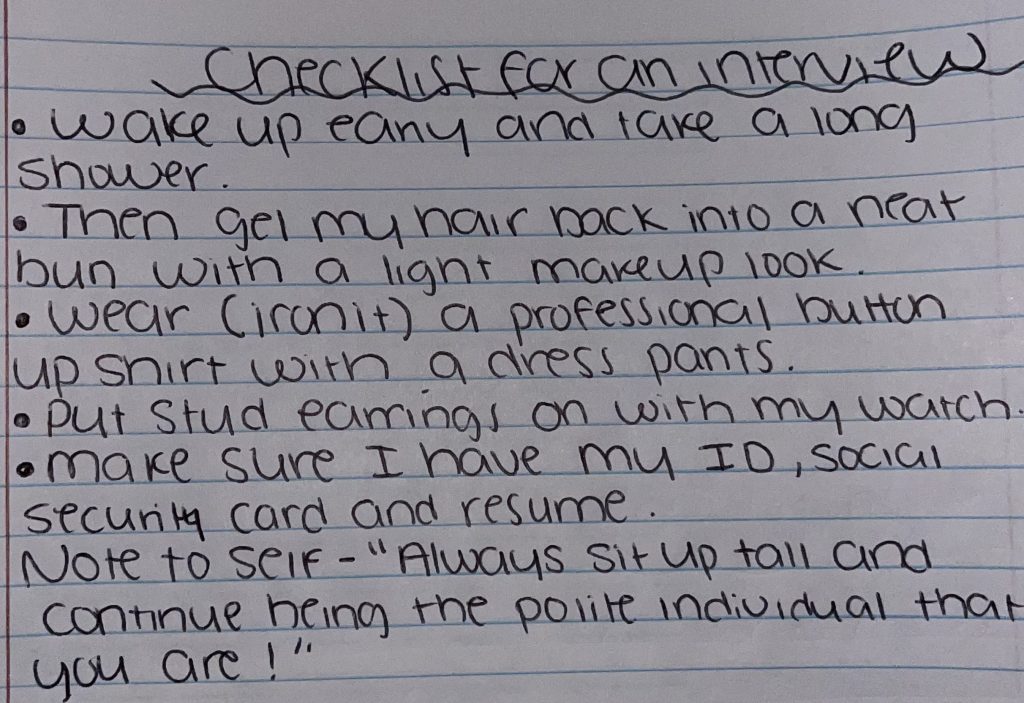 Checklist for an interview
• Wake up early and take a long
shower.
• Then gel my hair back into a neat
bun with a light makeup look.
• Wear (iron it) a professional button
up shirt with a dress pants.
• Put stud earrings on with my watch.
• Make sure I have my ID, social
security card and resume.
Note to self - "Always sit up tall and
continue being the polite individual that
you are!"